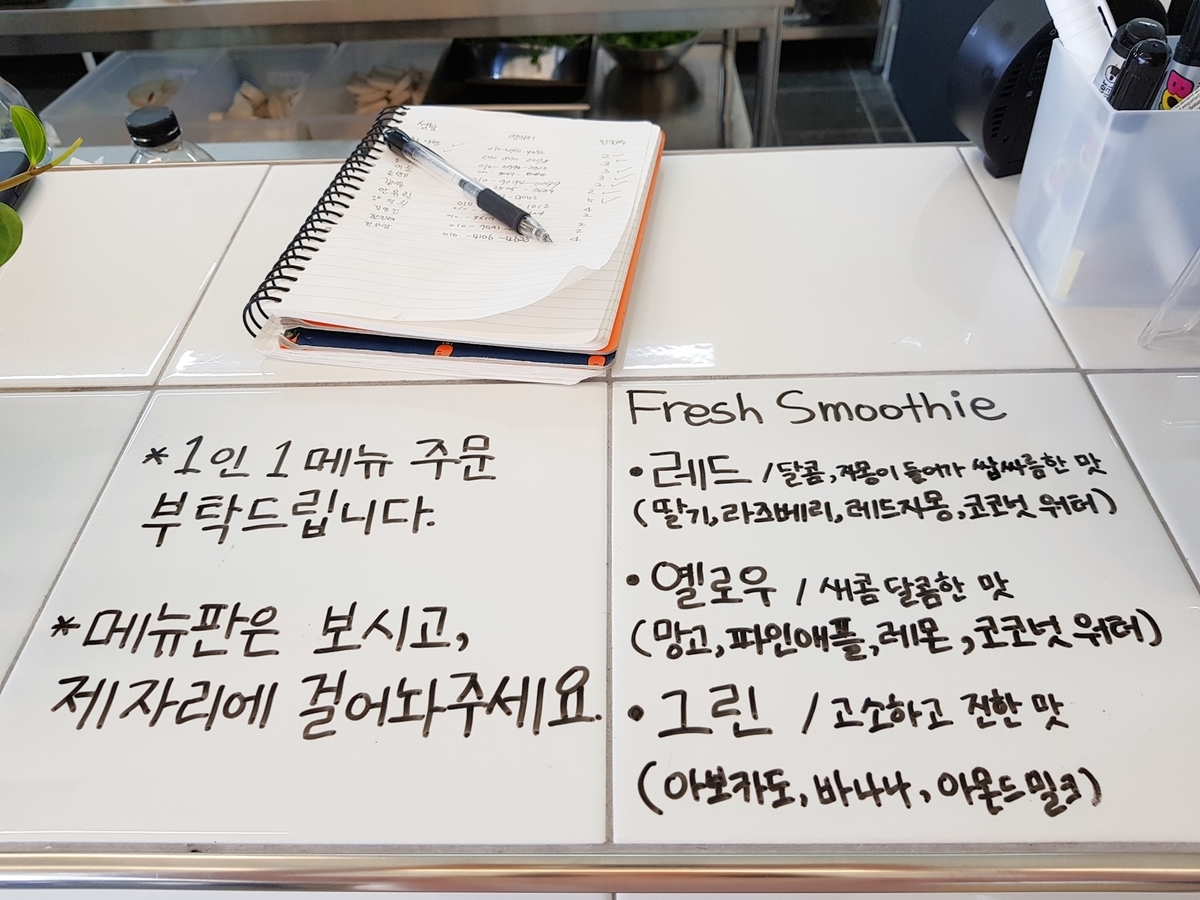 *1인 1메뉴 주문
부탁드립니다.
*메뉴판은 보시고,
제자리에 걸어놔주세요.
Fresh Smoothie
•레드 /달콤,자몽이 들어가 쌉싸름한 맛
(딸기,라즈베리,레드자몽,코코넛 워터)
•옐로우 / 새콤달콤한 맛
(망고,파인애플,레몬,코코넛 워터)
•그린 /고소하고 진한 맛
(아보카도,바나나,아몬드밀크)